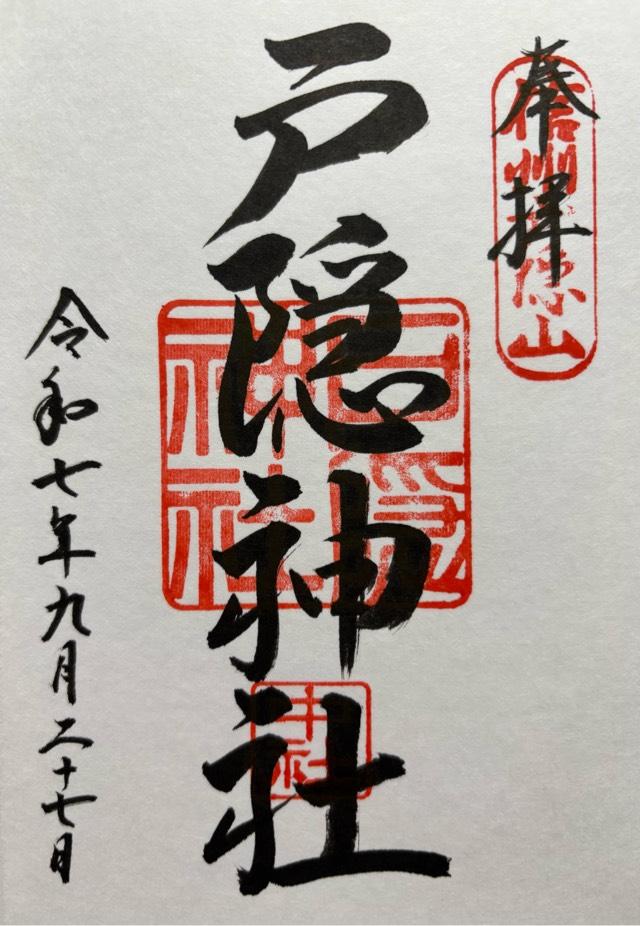 奉拝
信州戸隠山
戸隠神社
戸隠神社
中社
令和七年九月二十七日